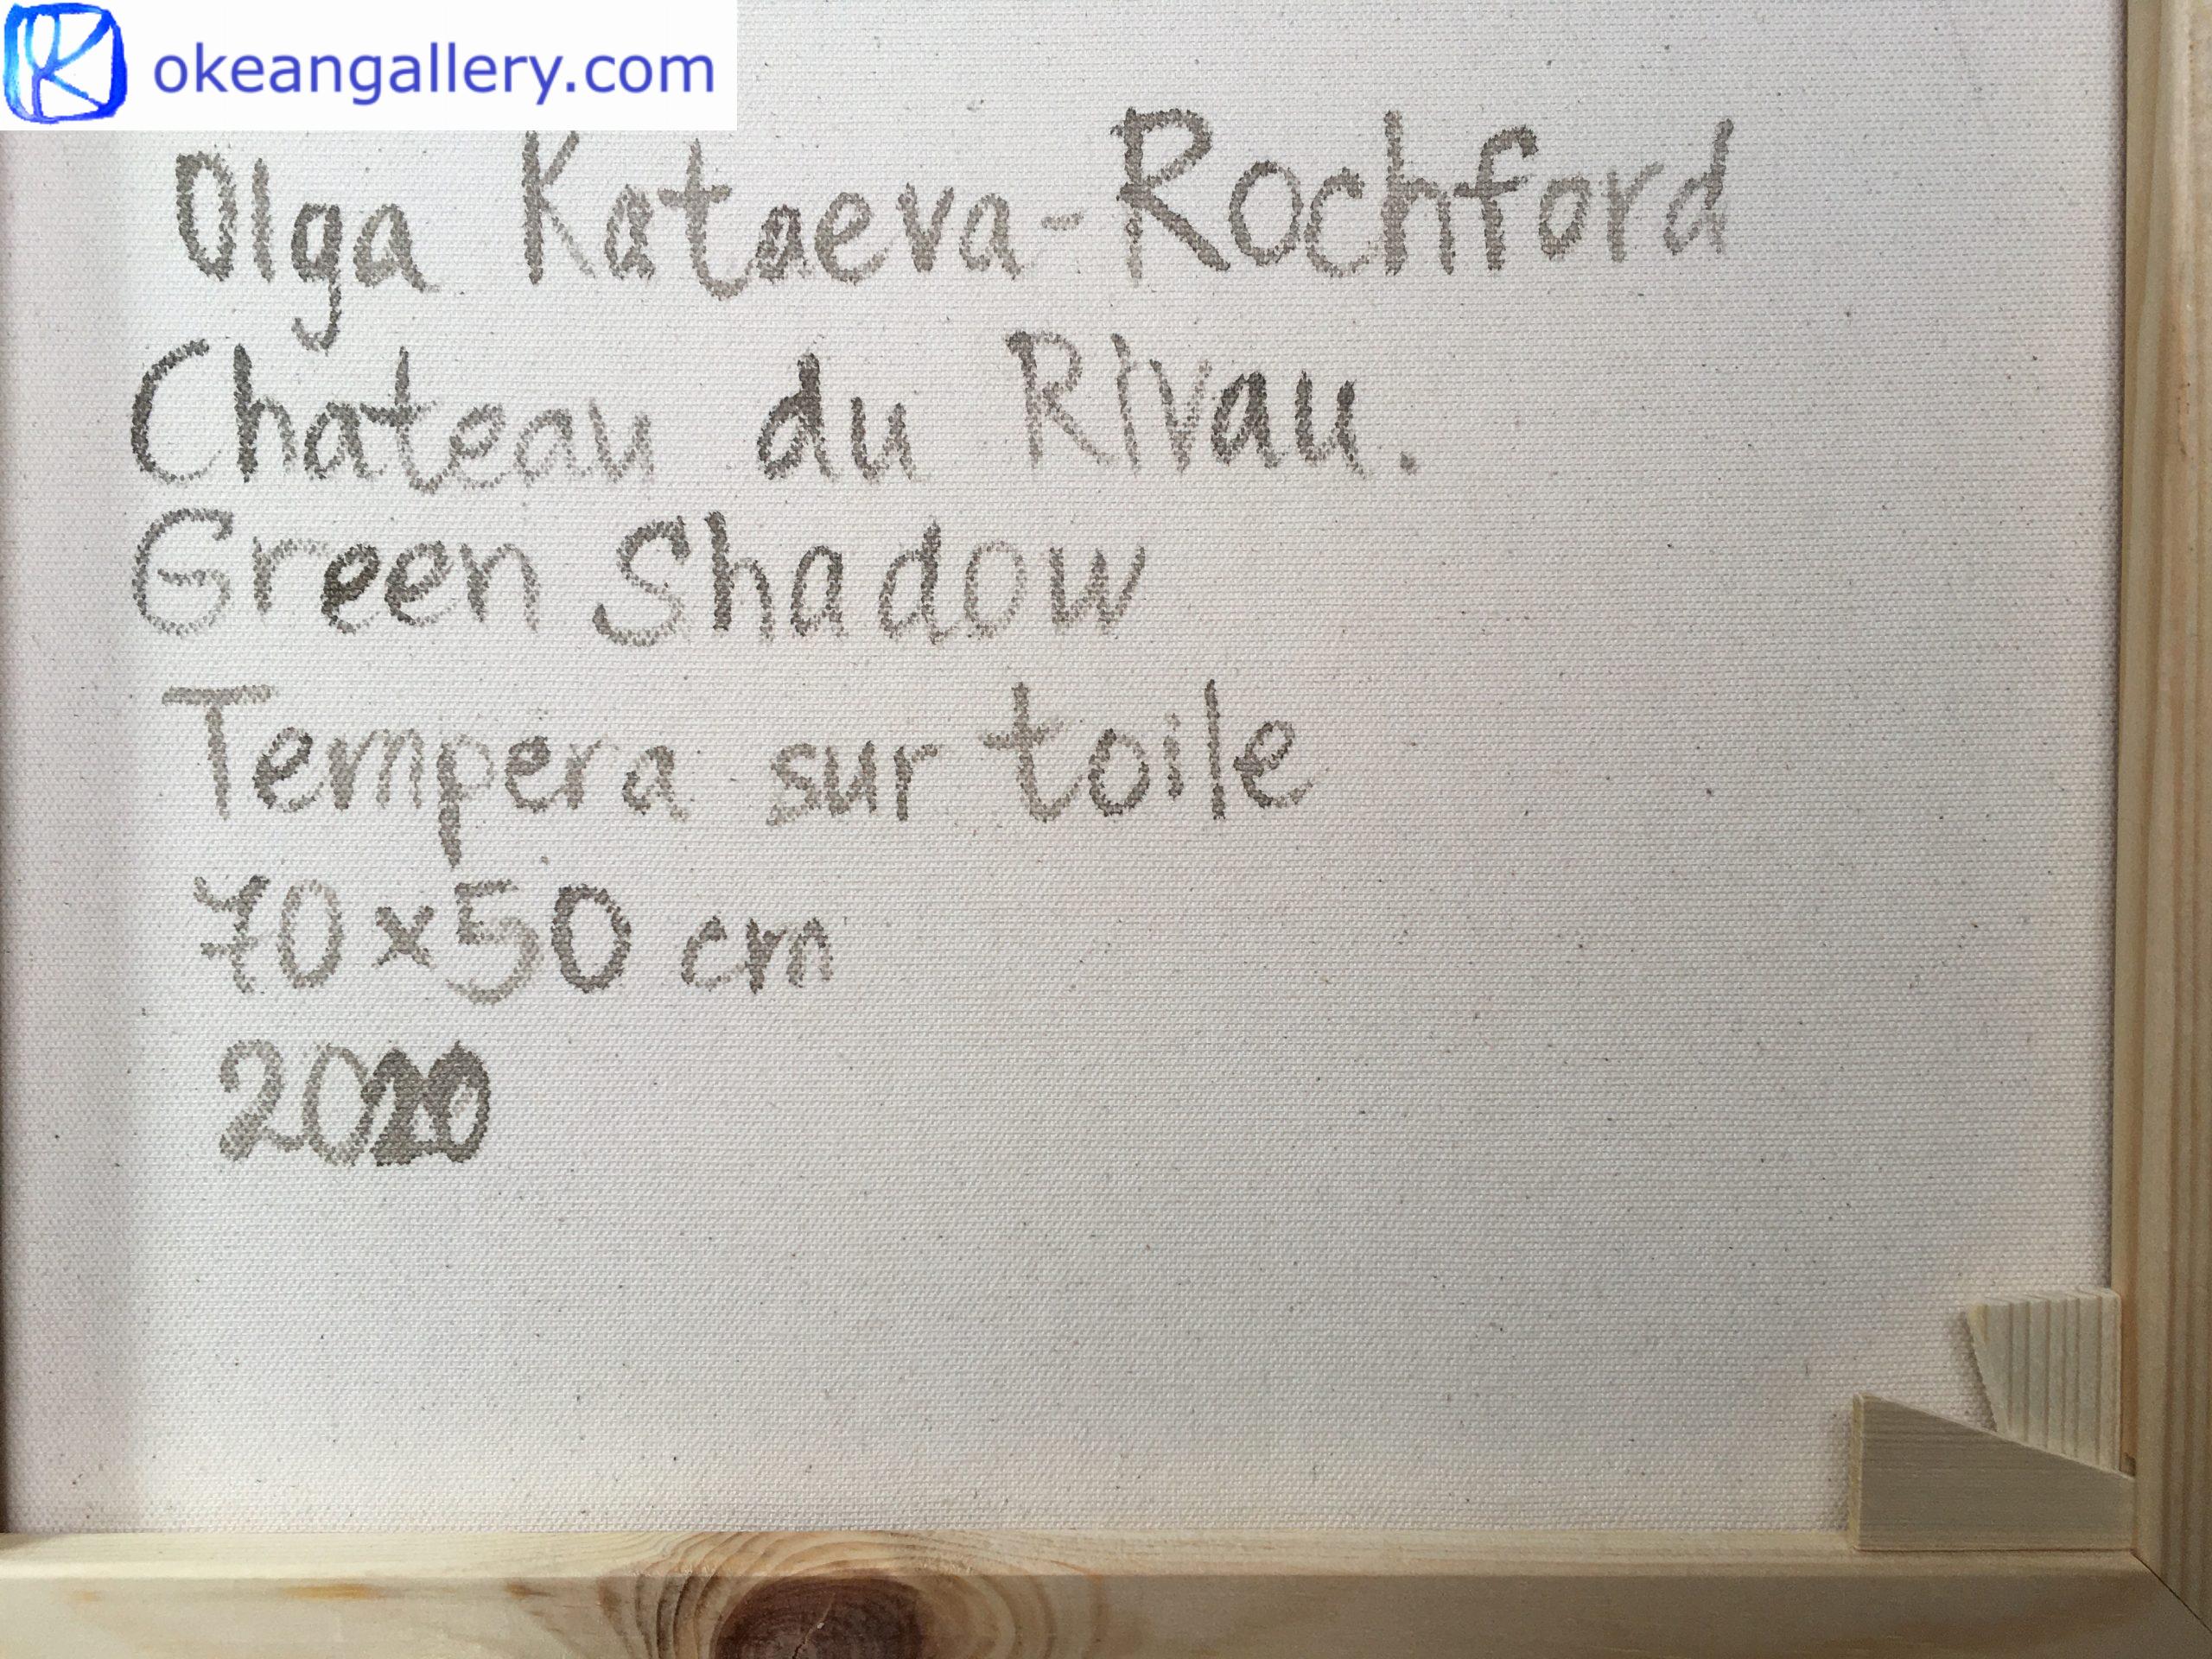 okeangallery.com
Olga Kataeva-Rochford
Chateau du Rivau.
Green Shadow
Tempera sur toile
70x50 cm
2020